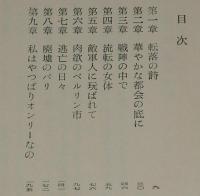 目次
第一章 転落の詩
第二章 華やかな都会の底に
第三章 戦陣の中で
第四章 流転の女体
第五章 敵軍人に玩ばれて
第六章 肉欲のベルリン市
第七章 逃亡の日々
第八章 廃墟のパリ
第九章 私はやっぱりオンリーなの